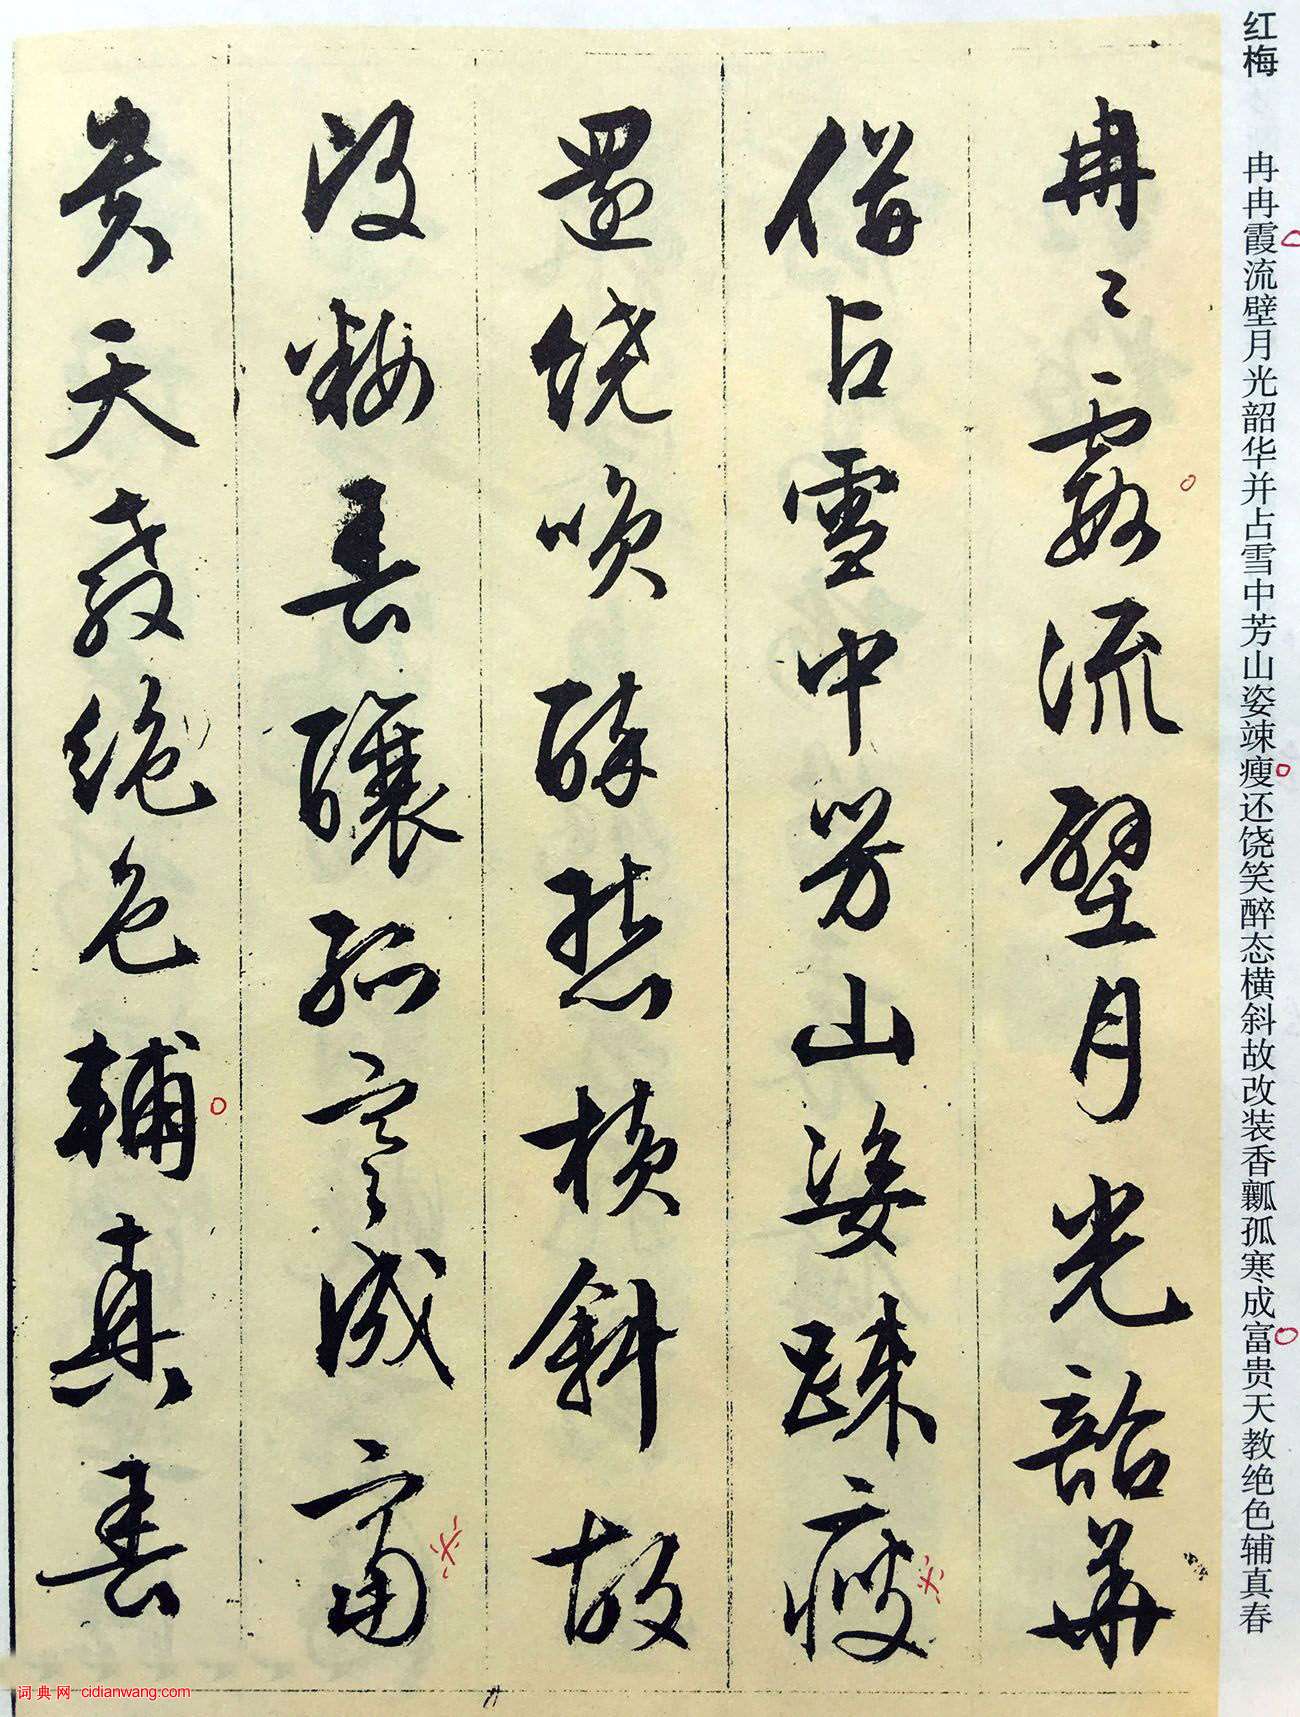 红梅
冉冉霞流壁月光韶华并占雪中芳山姿竦瘦还饶笑醉态横斜故改装香瓤孤寒成富贵天教绝色辅真春
冉々霞流壁月光韶華
併占雪中芳山姿踈瘦
還饒咲醉態横斜故
改粧香釀孤寒成富
貴天教絶色輔真香
词典网 cidianwang.com